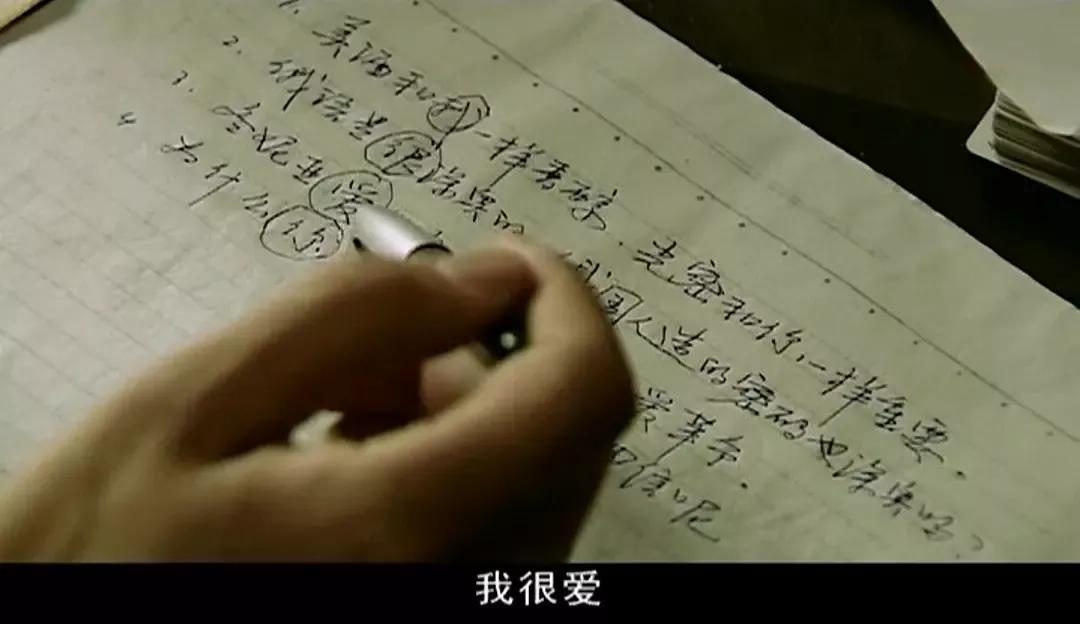 1. 英语和我一样香醇、光密和你一样重要.
2. 俄语是很深奥的 俄国人造的密码也深奥吗?
3. 冬妮亚爱 爱革命.
4 为什么你 回信呢
我很爱